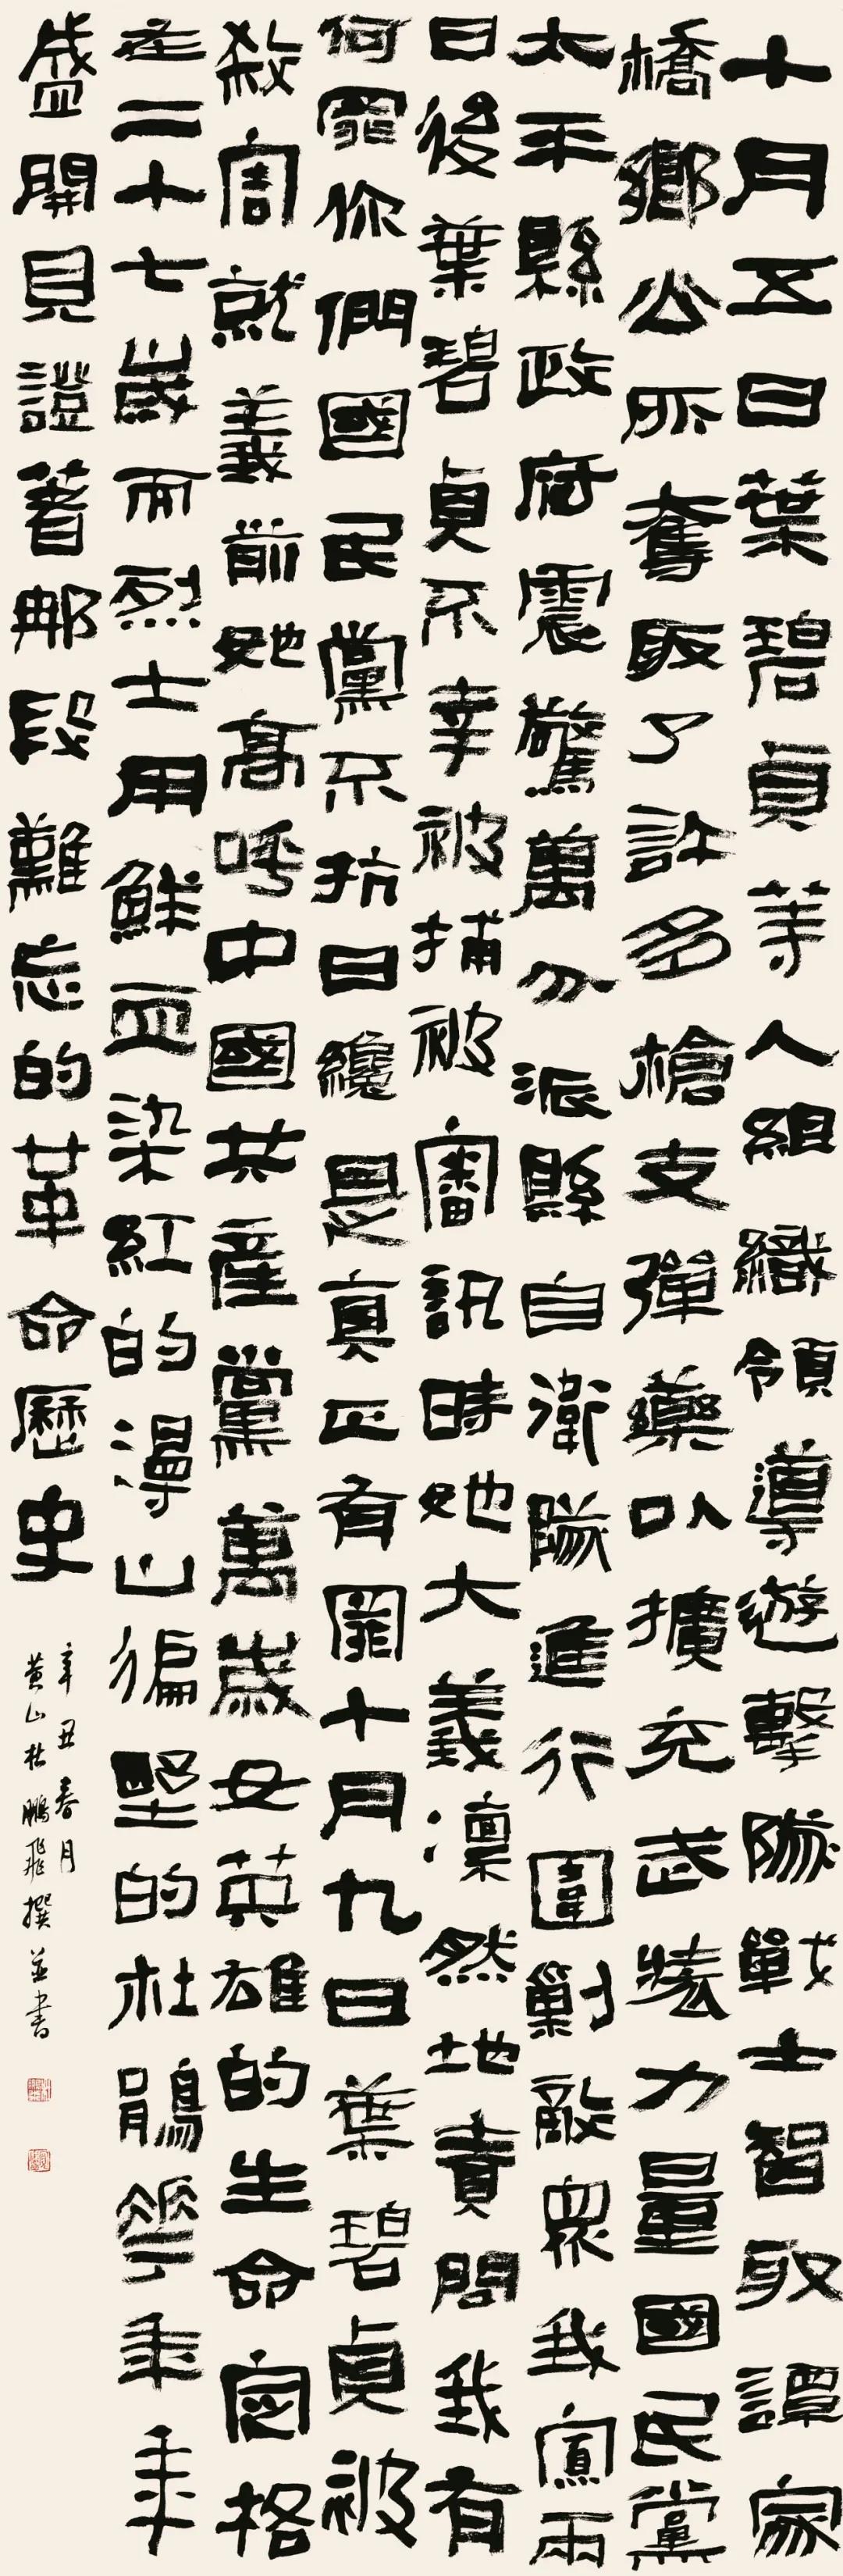 十月五日葉碧貞等人組織領導遊擊隊戰士智取譚家
橋鄉公所奪取了許多槍支彈藥以擴充武裝力量國民黨
太平縣政府震驚萬分派縣自衛隊進行圍剿敵眾我寡兩
日後葉碧貞不幸被捕被審訊時她大義凜然地責問我有
何罪你們國民黨不抗日纔是真正有罪十月九日葉碧貞被
殺害就義前她高呼中國共產黨萬歲女英雄的生命定格
在二十七歲而烈士用鮮血染紅的漫山徧野的杜鵑花年年
盛開見證著那段難忘的革命歷史
辛丑春月
黄山杜鵬飛撰並書